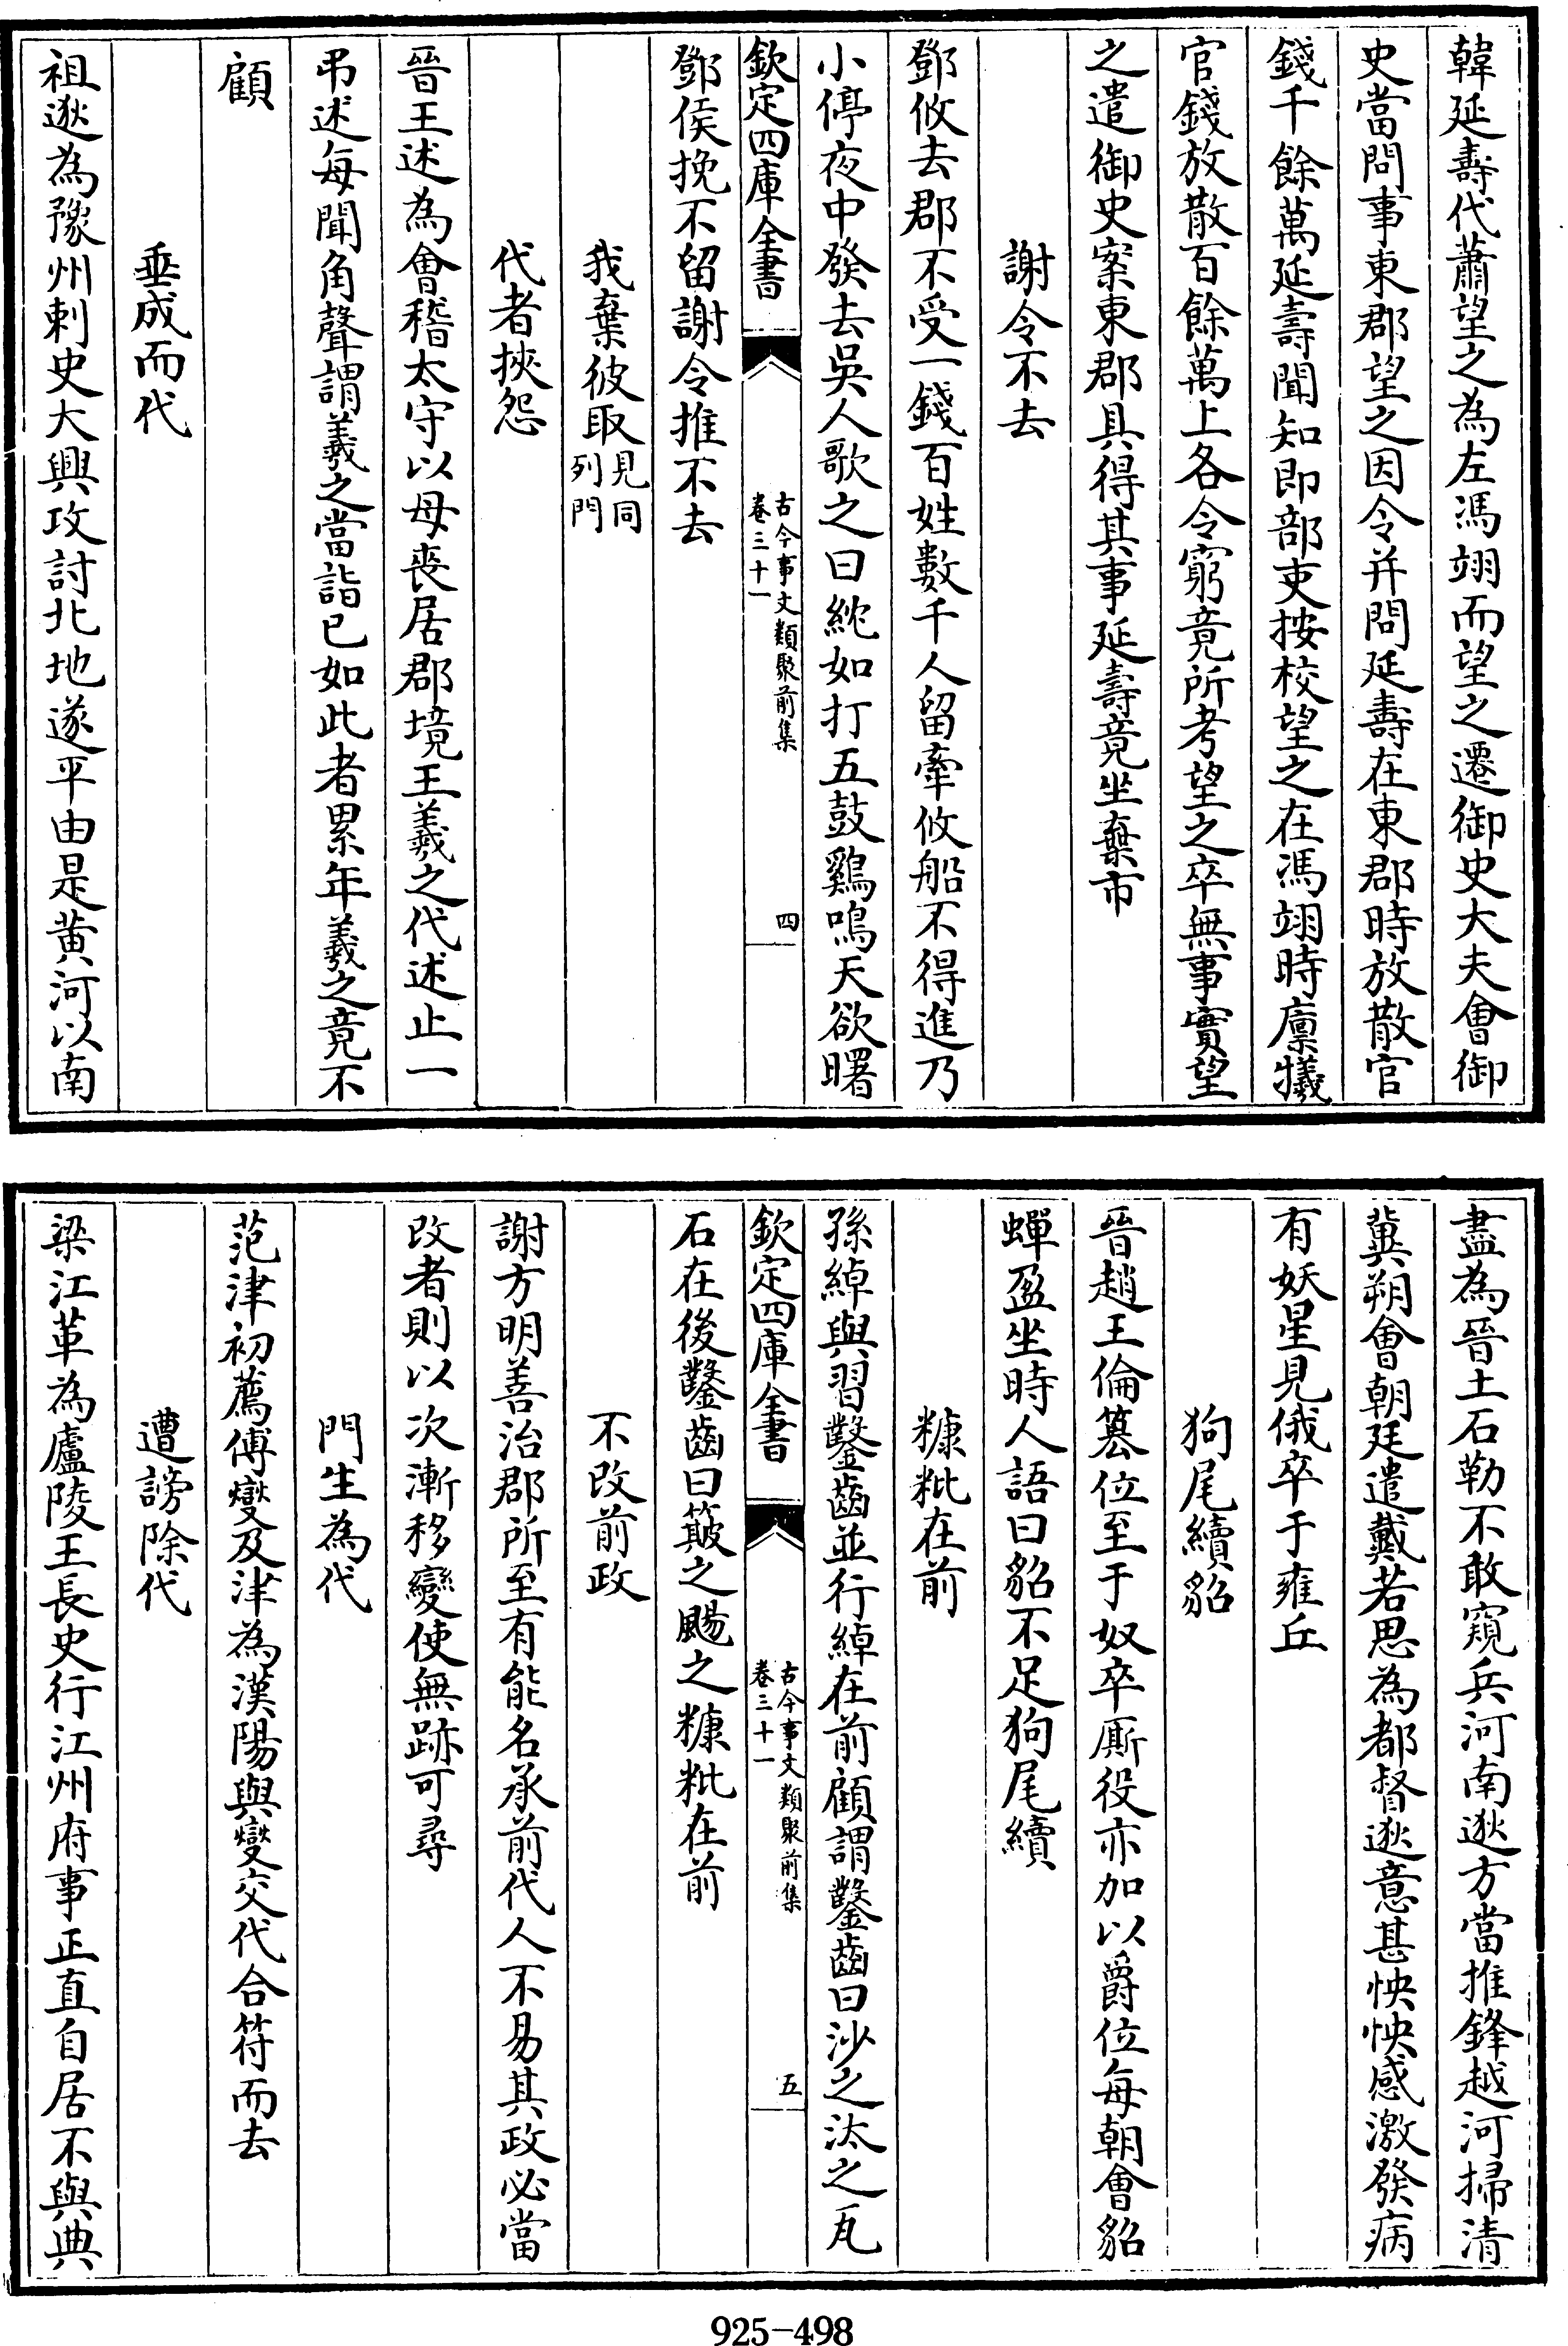 韓延壽代蕭望之為左馮翊而望之遷御史大夫會御
史當問事東郡望之因令并問延壽在東郡時放散官
錢千餘萬延壽聞知即部吏按校望之在馮翊時廩犧
官錢放散百餘萬上各令窮竟所考望之卒無事實望
之遣御史案東郡具得其事延壽竟坐棄市
謝令不去
鄧攸去郡不受一錢百姓數千人留牽攸船不得進乃
小停夜中發去吳人歌之曰紞如打五鼓鷄鳴天欲曙
欽定四庫全書
古今事文類聚前集
卷三十一
四
鄧侯挽不留謝令推不去
我棄彼取見同
列門
代者挾怨
晉王述為會稽太守以母喪居郡境王羲之代述止一
弔述每聞角聲謂羲之當詣已如此者累年羲之竟不
顧
垂成而代
祖逖為豫州刺史大興攻討北地遂平由是黃河以南
盡為晉土石勒不敢窺兵河南逖方當推鋒越河掃清
冀朔會朝廷遣戴若思為都督逖意甚怏怏感激發病
有妖星見俄卒于雍丘
狗尾續貂
晉趙王倫簒位至于奴卒厮役亦加以爵位每朝會貂
蟬盈坐時人語曰貂不足狗尾續
糠粃在前
孫綽與習鑿齒並行綽在前顧謂鑿齒曰沙之汰之瓦
欽定四庫全書
古今事文類聚前集
卷三十一
五
石在後鑿齒曰簸之颺之糠粃在前
不改前政
謝方明善治郡所至有能名承前代人不易其政必當
改者則以次漸移變使無跡可尋
門生為代
范津初薦傅燮及津為漢陽與燮交代合符而去
遭謗除代
梁江革為廬陵王長史行江州府事正直自居不與典
925-498